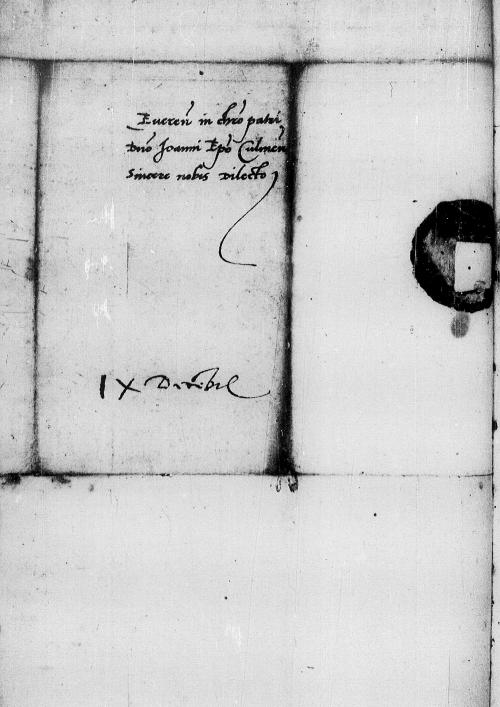 Reueren̄ in chr̄o patri
Dn̄o Joanni Ep̄o Culmen̄
Sincere nobis Dilecto
IX Decēbꝛ